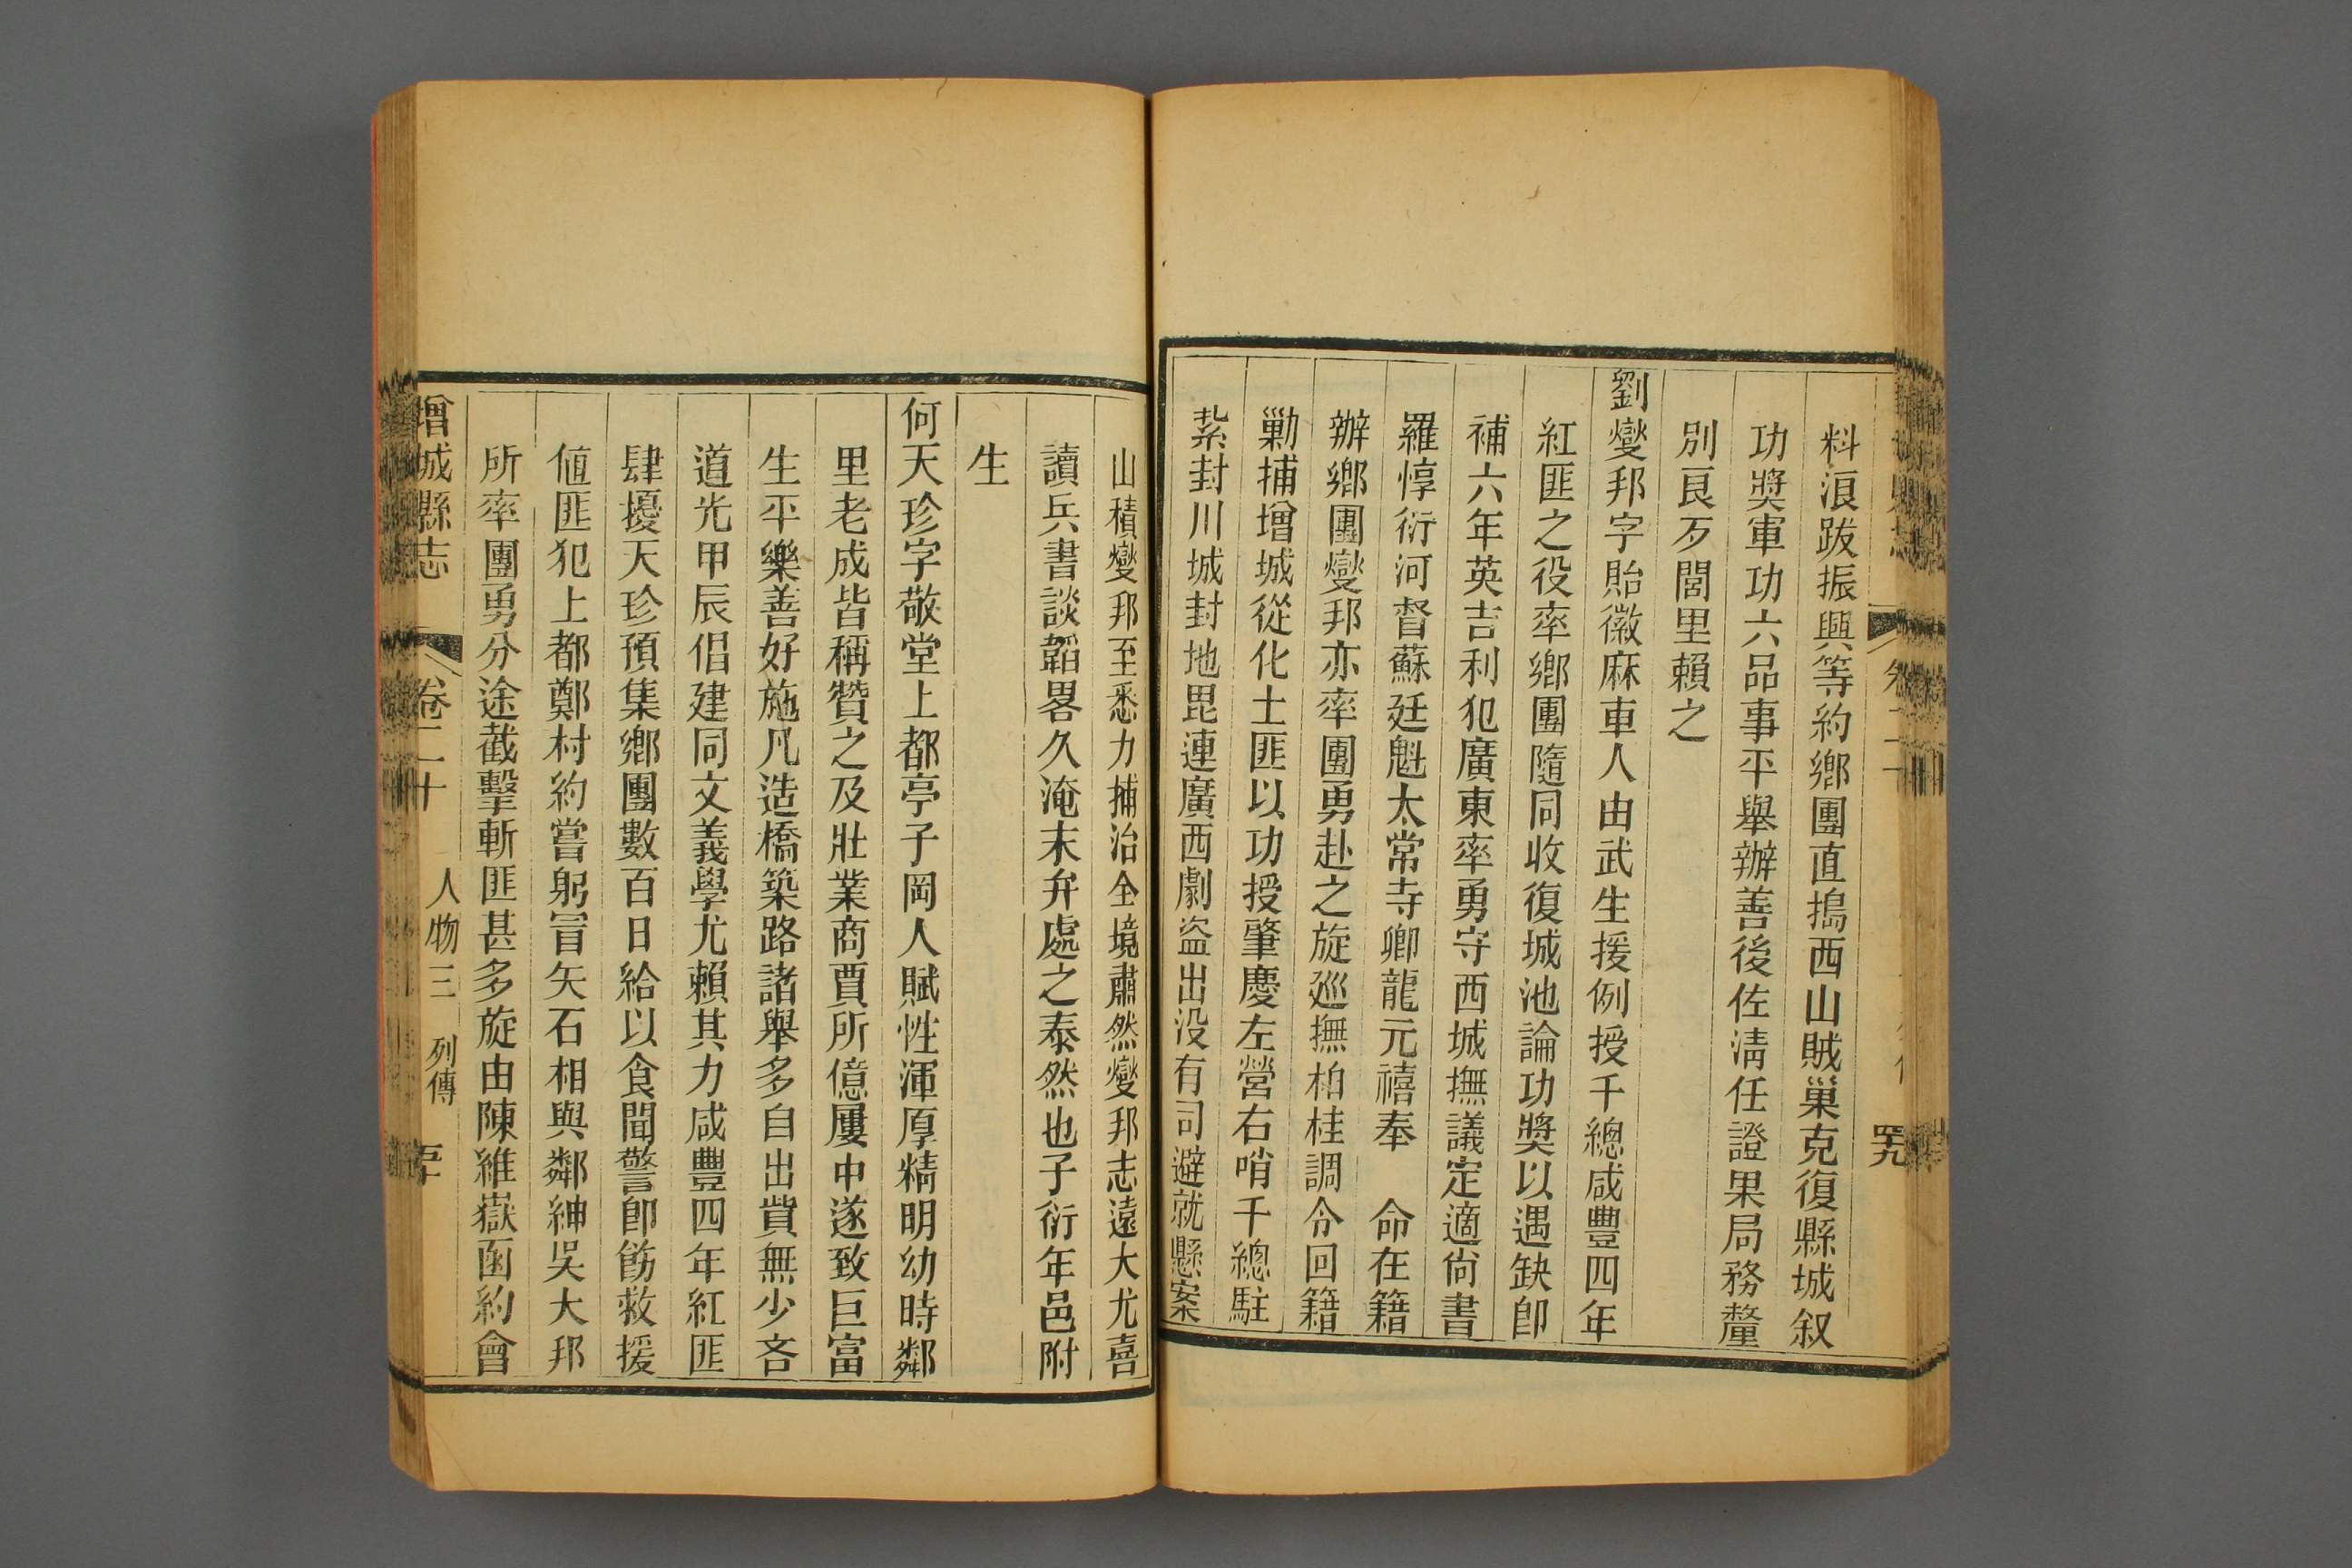 料浪跋振興等約鄉團直搗西山賊巢克復縣城叙
功獎軍功六品事平舉辦善後佐淸任證果局務釐
別良歹閭里賴之
劉燮邦字貽徽麻車人由武生援例授千總咸豐四年
紅匪之役率鄉團隨同收復城池論功獎以遇缺卽
補六年英吉利犯廣東率勇守西城撫議定適尙書
羅惇衍河督蘇廷魁太常寺卿龍元禧奉 命在籍
辦鄉團燮邦亦率團勇赴之旋廵撫柏桂調令回籍
勦捕增城從化土匪以功授肇慶左營右哨千總駐
紥封川城封地毘連廣西劇盜出没有司避就懸案
四九
山積燮邦至悉力捕治全境肅然燮邦志遠大尤喜
讀兵書談韜畧久淹末弁處之泰然也子衍年邑附
生
何天珍字敬堂上都亭子岡人賦性渾厚精明幼時鄰
里老成皆稱贊之及壯業商賈所億屢中遂致巨富
生平樂善好施凡造橋築路諸舉多自出貲無少吝
道光甲辰倡建同文義學尤賴其力咸豐四年紅匪
肆擾天珍預集鄉團數百日給以食聞警卽飭救援
値匪犯上都鄭村約嘗躬冒矢石相與鄰紳吳大邦
所率團勇分途截擊斬匪甚多旋由陳維嶽函約會
增城縣志 卷二十 人物三 列傳 五十